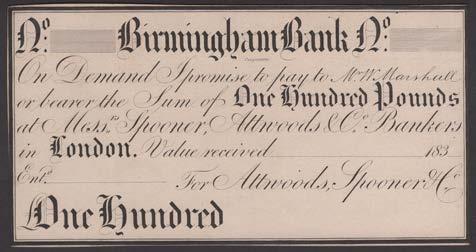 No. Birmingham Bank No.
On Demand I promise to pay to Mr. W. Marshall
or bearer the Sum of One Hundred Pounds
at Mess.rs Spooner, Attwoods & Co. Bankers
in London. Value received 183
Ent.d
For Attwoods, Spooner & Co.
One Hundred